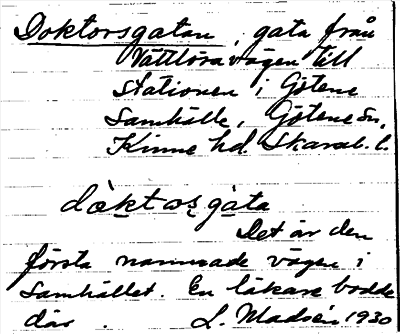 Doktorsgatan, gata från
Vättlösavägen till
stationen i Götene
samhälle, Götene sn,
Kinne hd. Skarab. l.
dòktosgàta
Det är den
första namnade vägen i
samhället. En läkare bodde
där. L. Madsén 1930